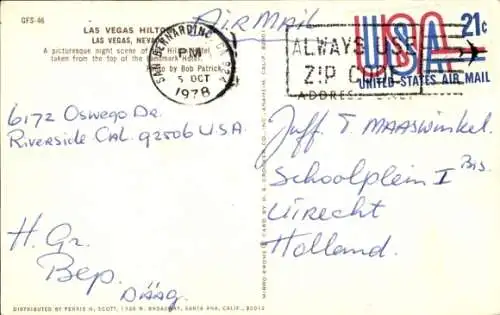 GFS-46
LAS VEGAS HILTON
LAS VEGAS, NEVADA
A picturesque night scene of the Hilton Hotel,
taken from the top of the Landmark Hotel.
Photo by Bob Patrick
AIR MAIL
SAN BERNARDINO
PM
5 OCT
1978
ALWAYS USE
ZIP CODE
ADDRESS
USA 21¢
UNITED STATES AIR MAIL
6172 Oswego Dr.
Riverside Cal. 92506 USA
H. Gr.
Bep.
Dääg.
Juff. T. MAASWinkel.
Schoolplein I Bis.
Utrecht
Holland.
DISTRIBUTED BY FERRIS H. SCOTT, N. BROADWAY, SANTA ANA, CALIF.